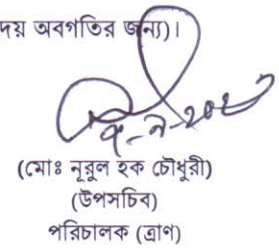 দয় অবগতির জন্য)।
(মোঃ নূরুল হক চৌধুরী)
(উপসচিব)
পরিচালক (ত্রাণ)